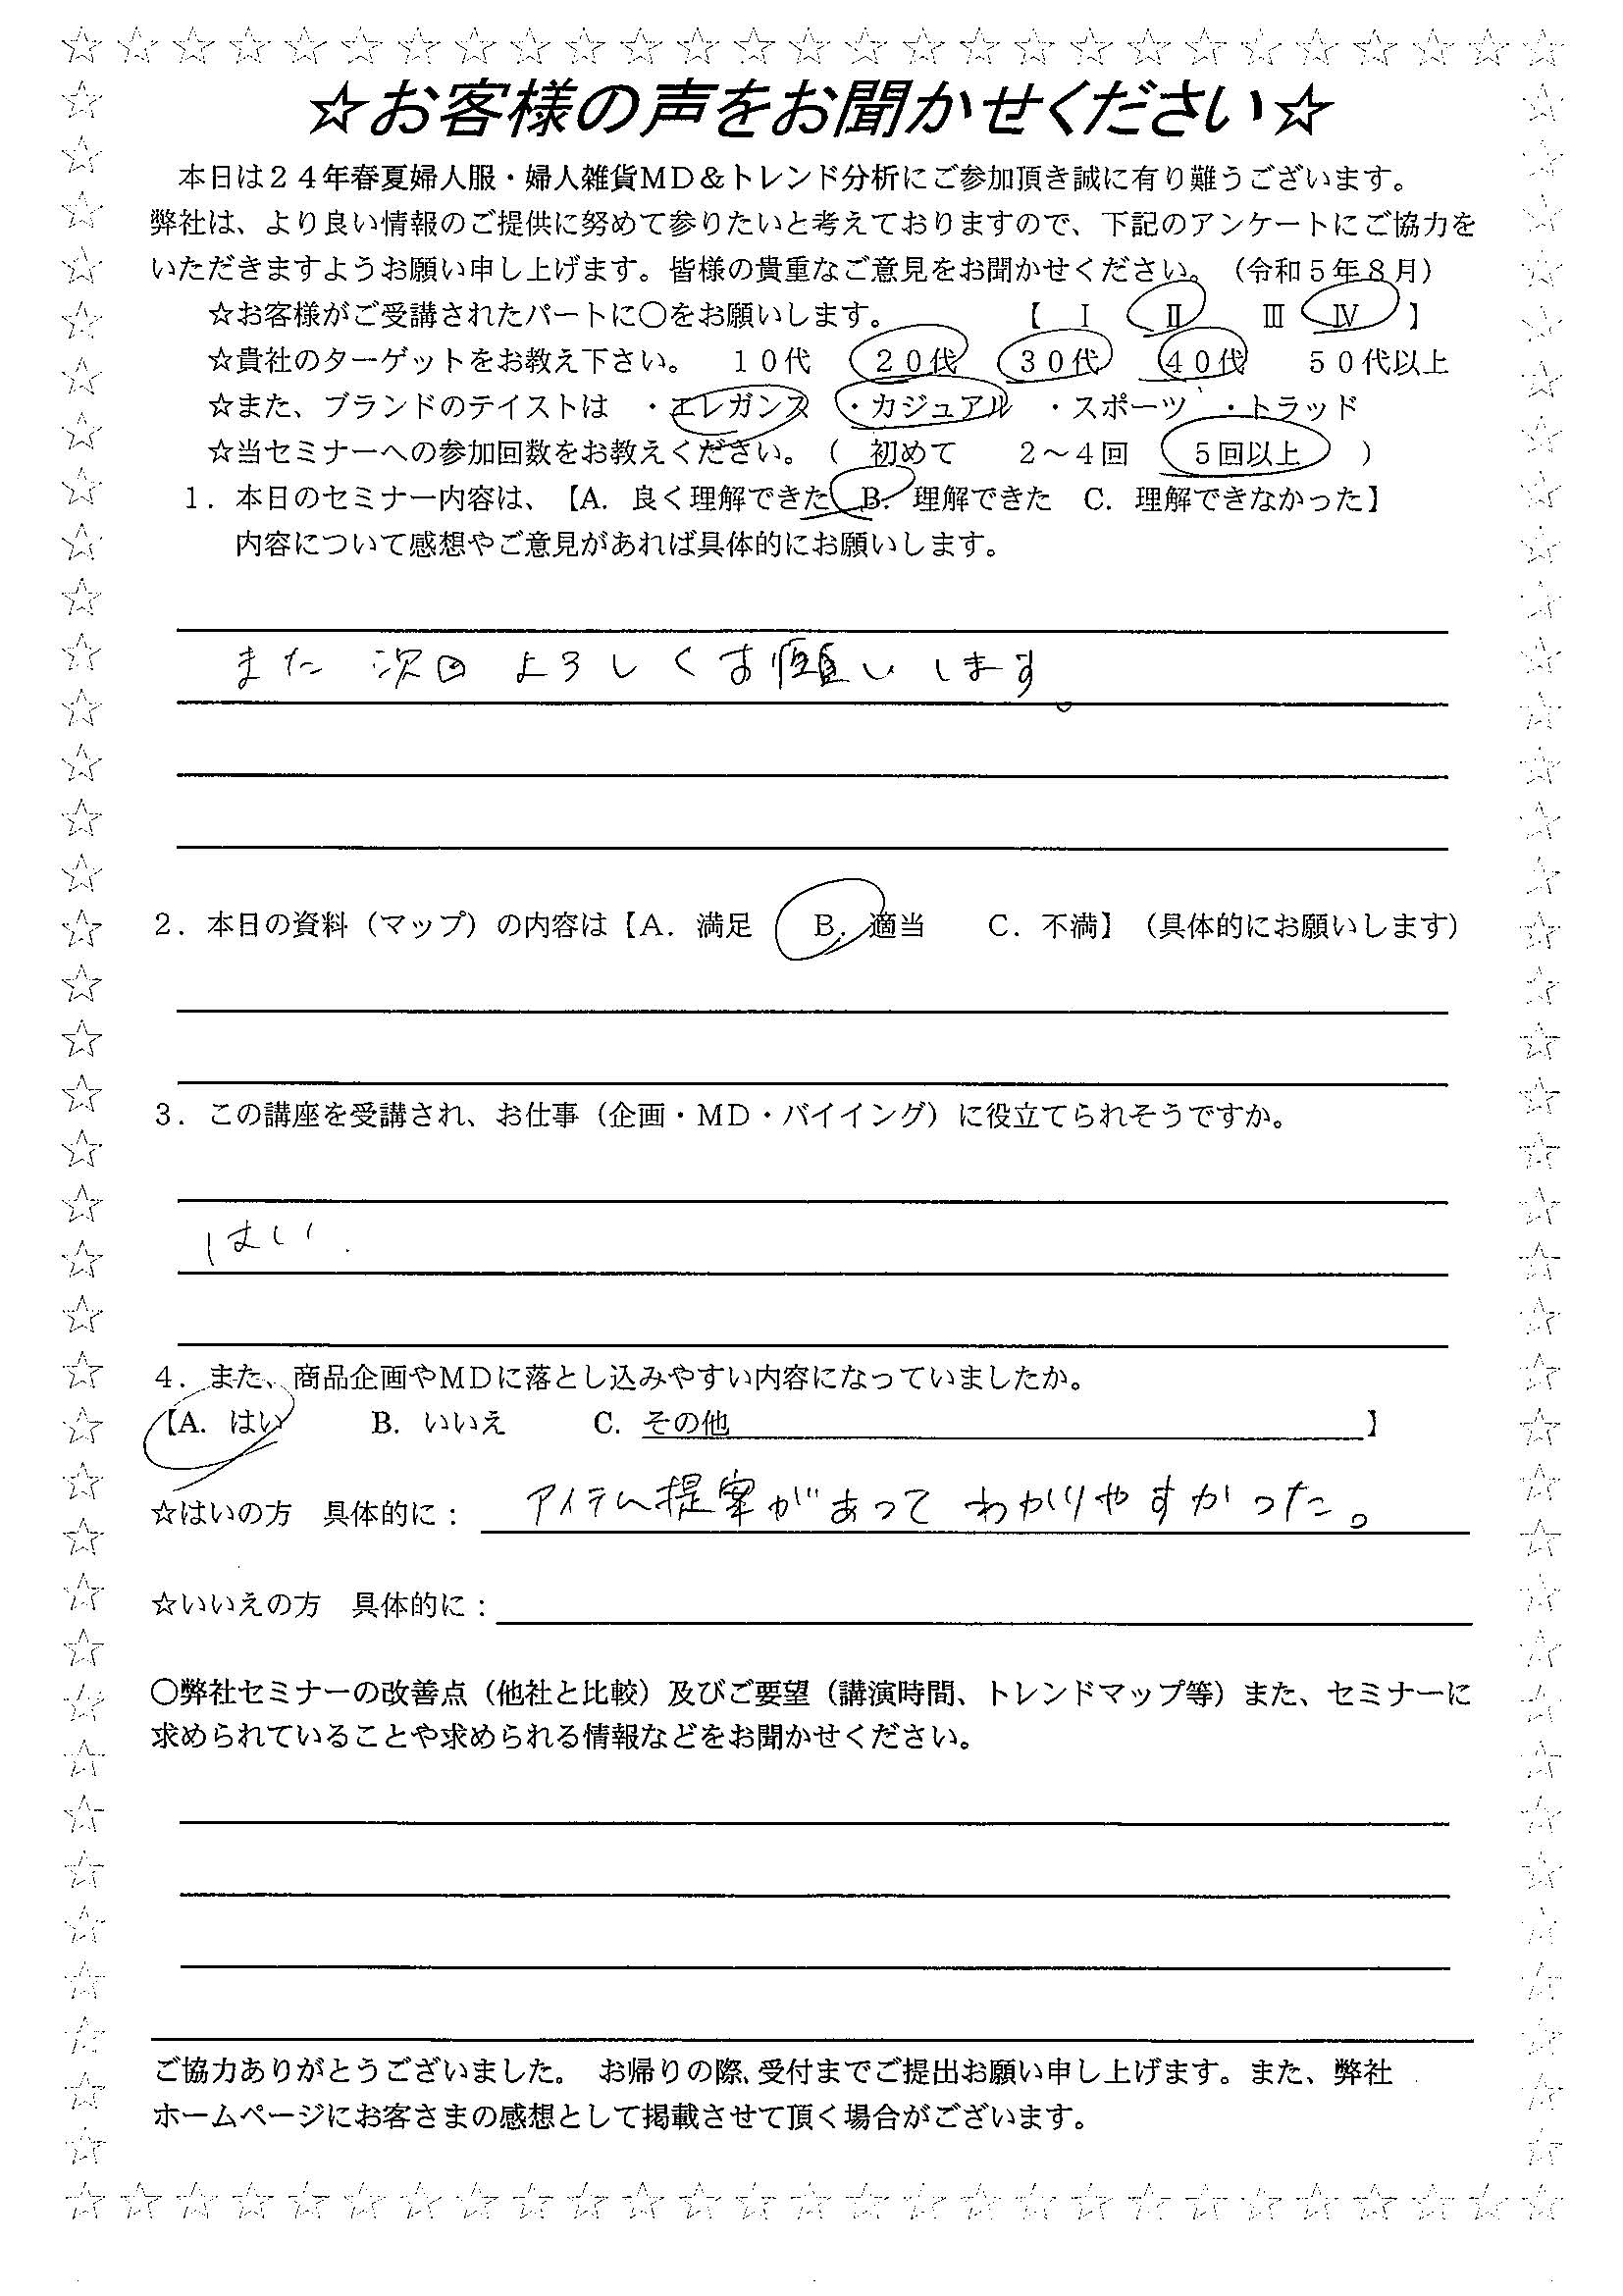 ☆お客様の声をお聞かせください☆
本日は２４年春夏婦人服・婦人雑貨MD＆トレンド分析にご参加頂き誠に有り難うございます。
弊社は、より良い情報のご提供に努めて参りたいと考えておりますので、下記のアンケートにご協力を
いただきますようお願い申し上げます。皆様の貴重なご意見をお聞かせください。（令和５年８月）
☆お客様がご受講されたパートに〇をお願いします。 【 Ⅰ Ⅱ Ⅲ Ⅳ 】
☆貴社のターゲットをお教え下さい。 １０代 ２０代 ３０代 ４０代 ５０代以上
☆また、ブランドのテイストは ・エレガンス ・カジュアル ・スポーツ ・トラッド
☆当セミナーへの参加回数をお教えください。（ 初めて ２～４回 ５回以上 ）
１．本日のセミナー内容は、【A．良く理解できた B．理解できた C．理解できなかった】
内容について感想やご意見があれば具体的にお願いします。
また 次回 よろしくお願いします。
２．本日の資料（マップ）の内容は【A．満足 B．適当 C．不満】（具体的にお願いします）
３．この講座を受講され、お仕事（企画・MD・バイイング）に役立てられそうですか。
はい.
４．また、商品企画やMDに落とし込みやすい内容になっていましたか。
【A．はい B．いいえ C．その他 】
☆はいの方 具体的に： アイテム提案があって わかりやすかった。
☆いいえの方 具体的に：
〇弊社セミナーの改善点（他社と比較）及びご要望（講演時間、トレンドマップ等）また、セミナーに
求められていることや求められる情報などをお聞かせください。
ご協力ありがとうございました。 お帰りの際、受付までご提出お願い申し上げます。また、弊社
ホームページにお客さまの感想として掲載させて頂く場合がございます。